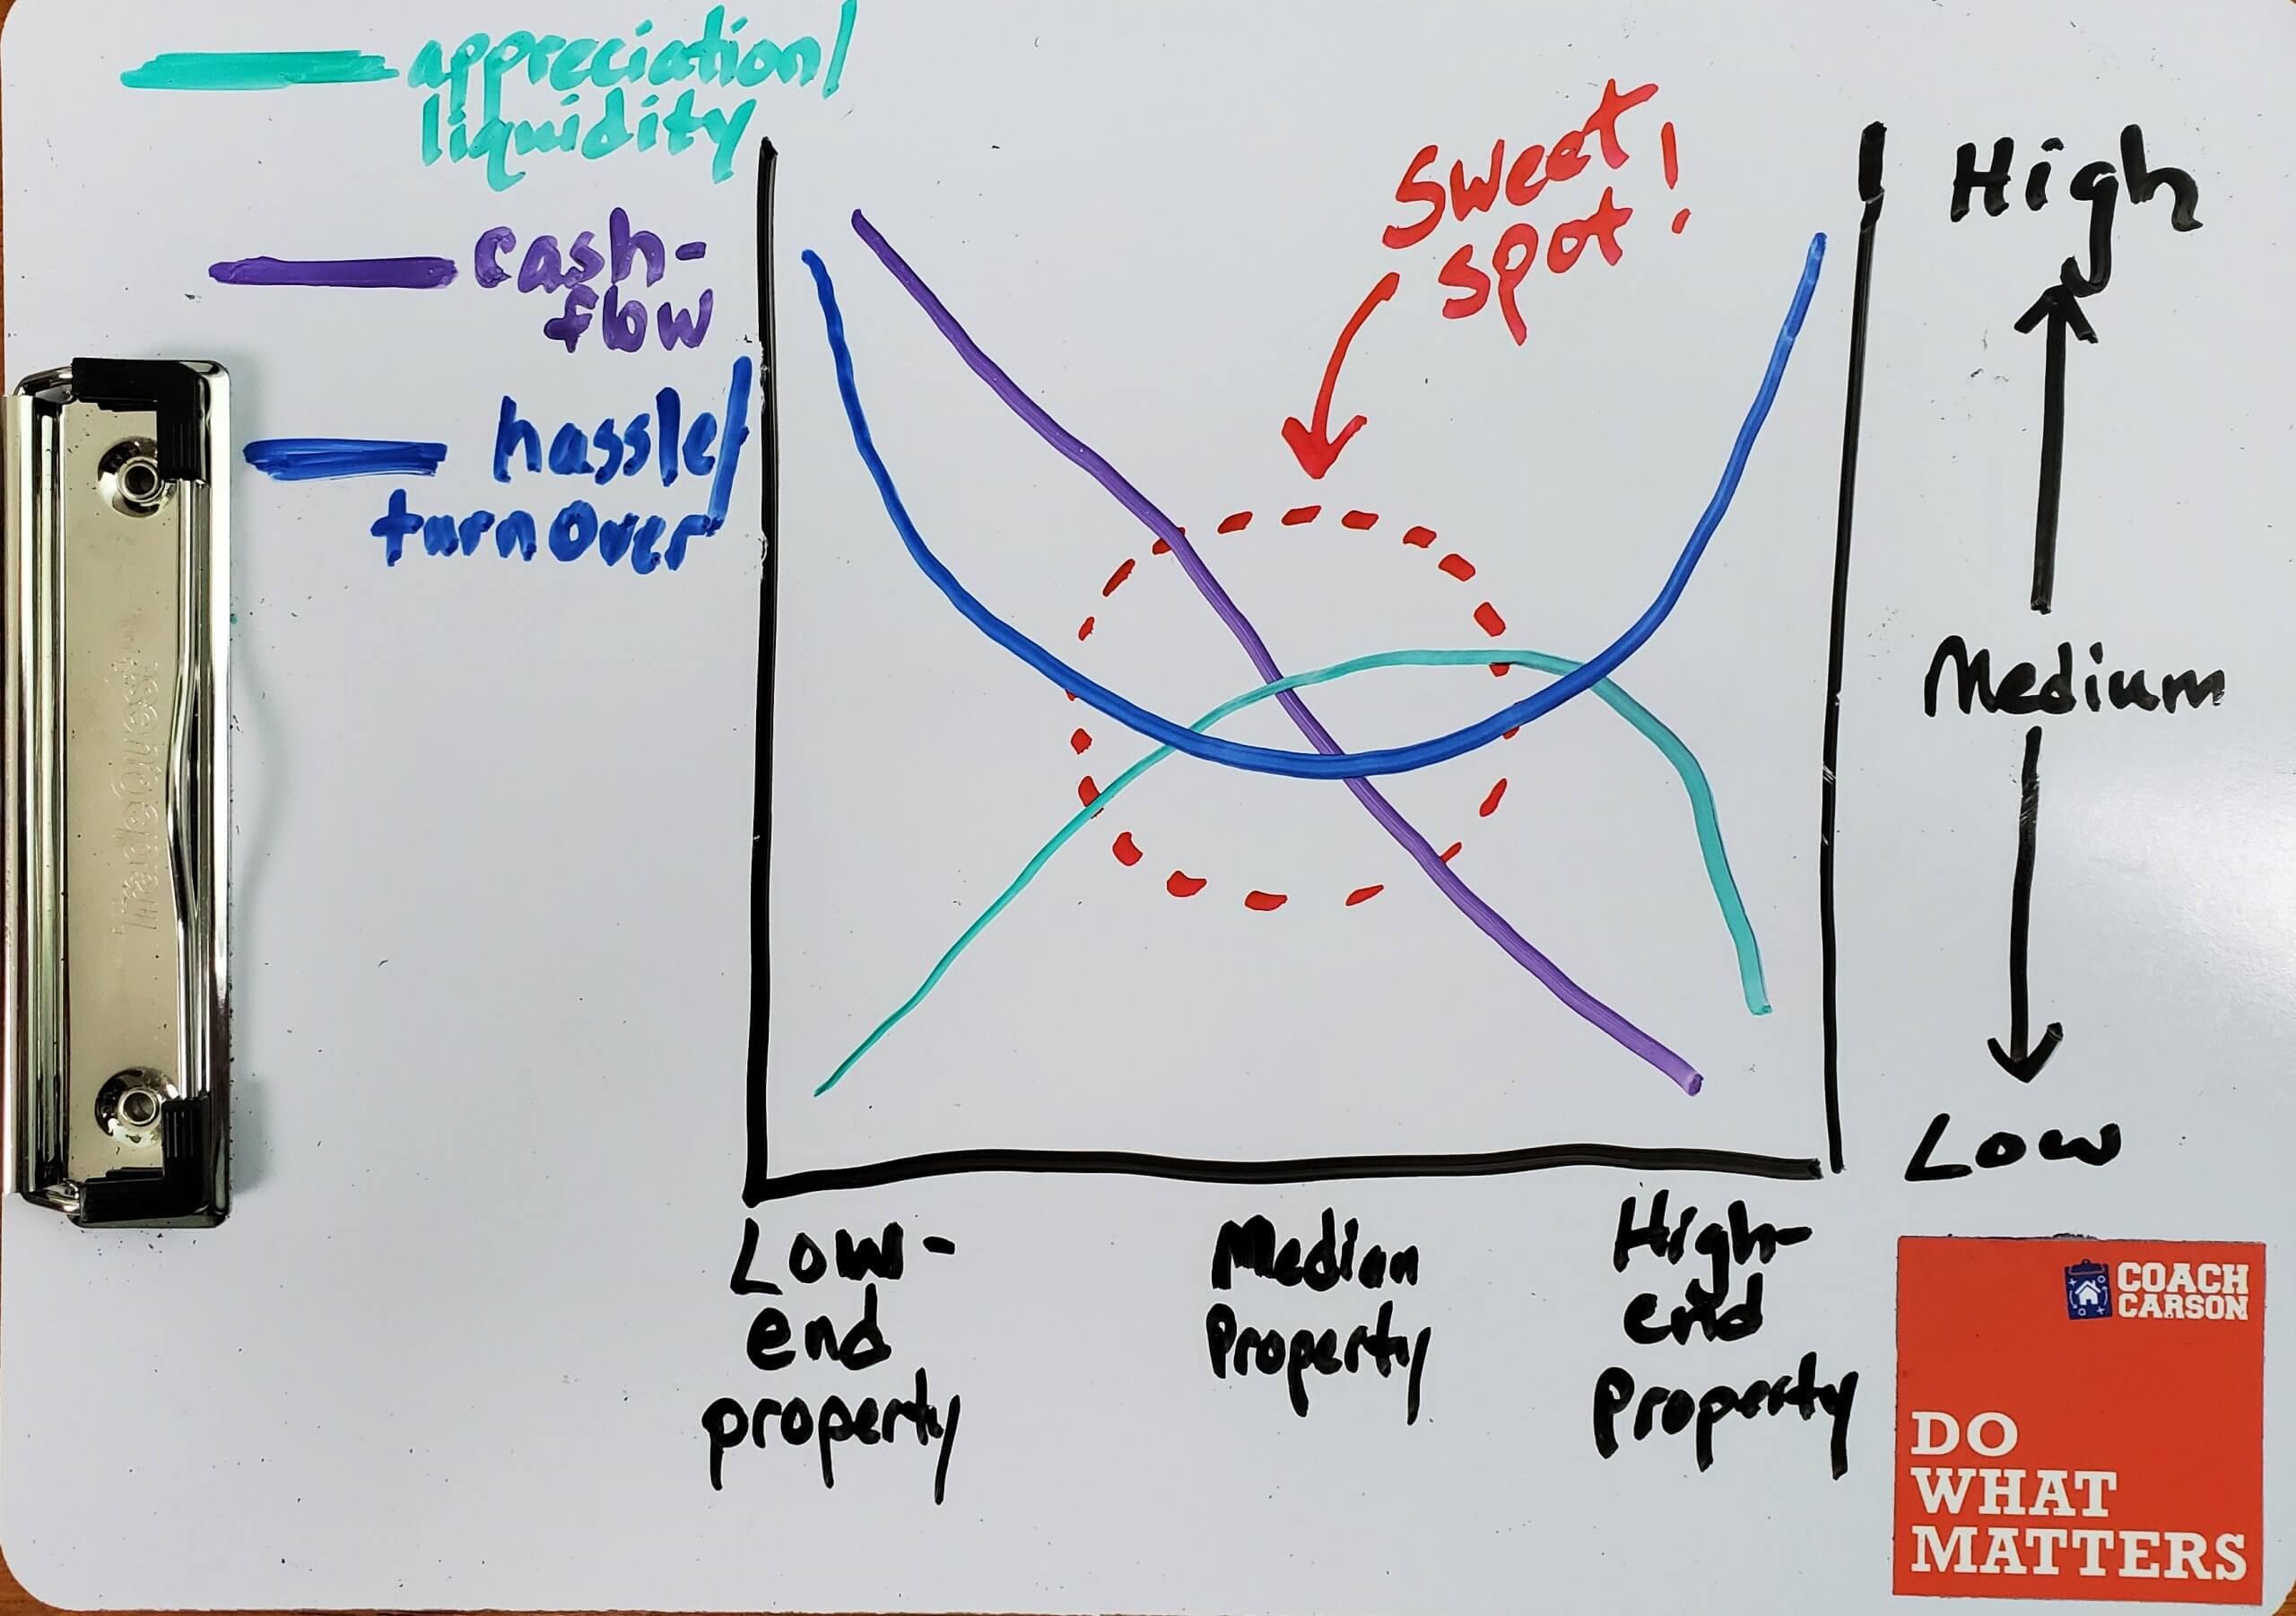 appreciation/
liquidity
cash-
flow
hassle/
turnover
Sweet
spot!
High
Medium
Low
Low-
end
property
Median
Property
High-
end
Property
COACH
CARSON
DO
WHAT
MATTERS
TradeQuest